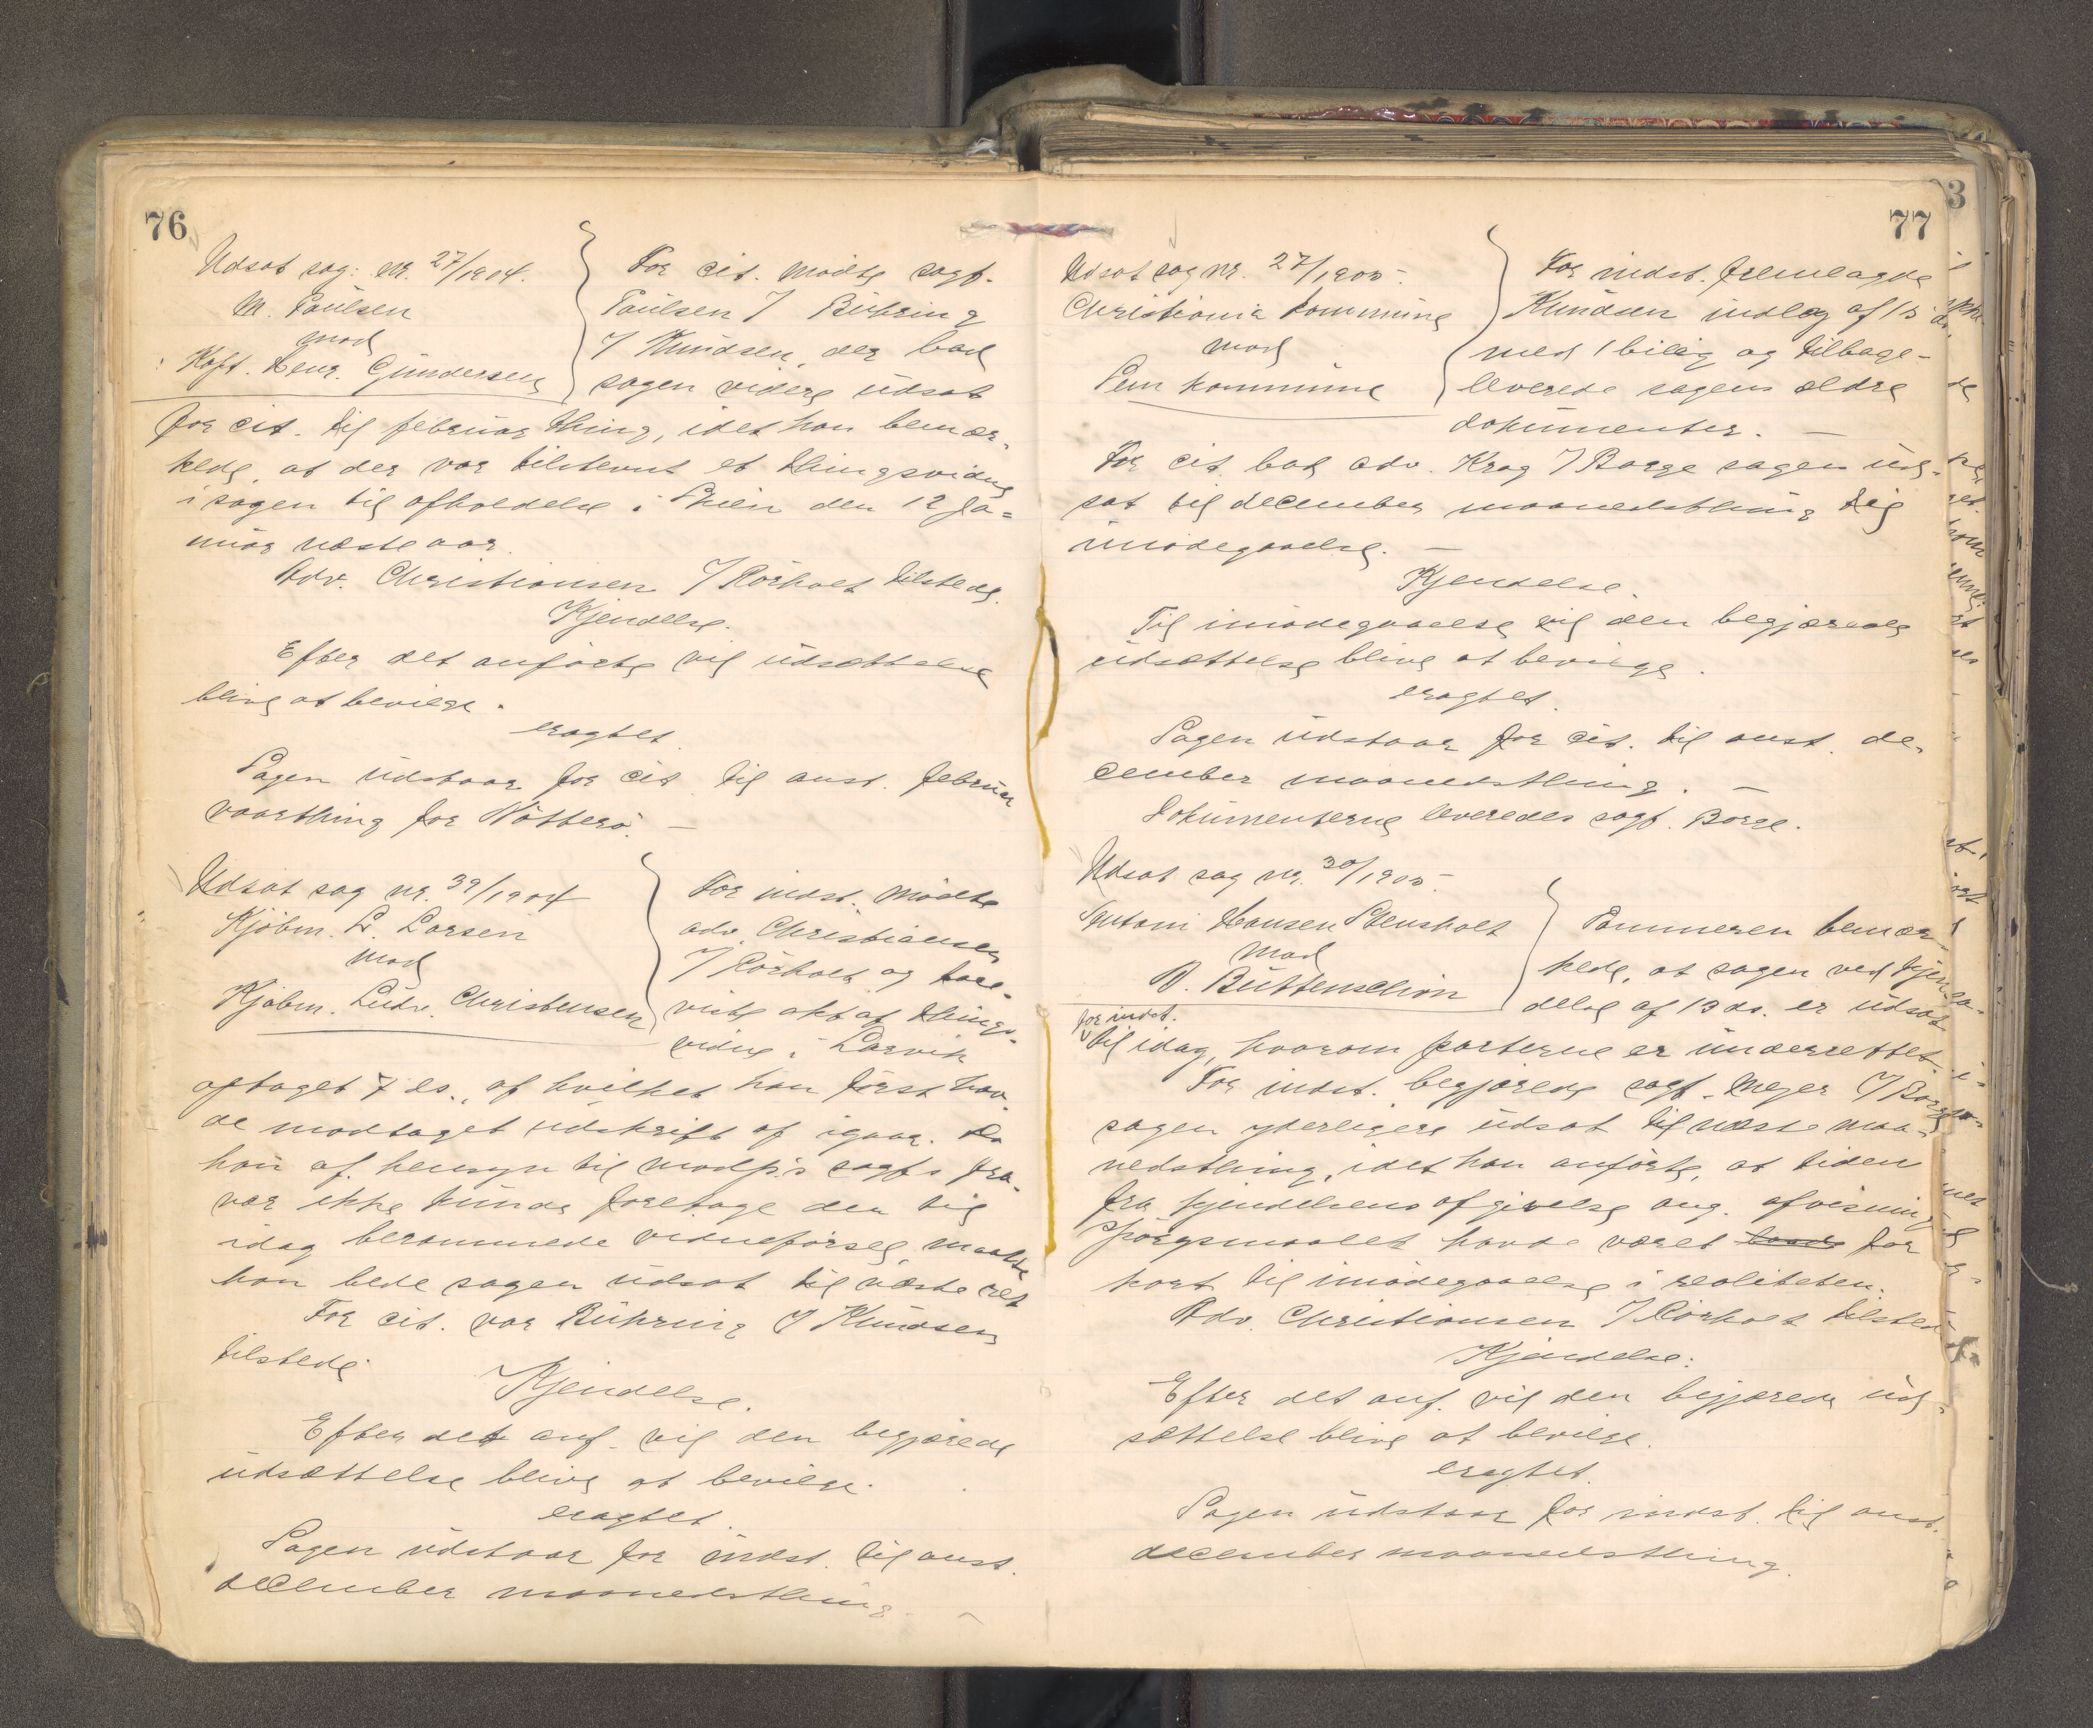 76
Udsat sag: nr. 27/1904.
M. Paulsen
mod
Kapt. Henr. Gundersen
For cit. mødte sagf.
Paulsen / Bühring
/ Knudsen, der bad
sagen videre udsat
for cit. til februar thing, idet han bemær-
kede, at der var tilstevnt et thingsvidne
i sagen til afholdelse i Skien den 12 Ja-
nuar næste aar.
Adv. Christiansen / Rörholt tilstede.
Kjendelse.
Efter det anførte vil udsættelse
blive at bevilge.
eragtet
Sagen udstaar for cit. til anst. februar
vaarthing for Nötterö. —
Udsat sag nr. 39/1904
Kjöbm. L. Larsen
mod
Kjöbm. Ludv. Christensen
For indst. mödte
adv. Christiansen
/ Rörholt og fore-
viste akt af things-
vidne i Larvik
optaget 7 ds., af hvilket han først hav-
de modtaget udskrift af igaar. Da
han af hensyn til modp.s sagf.s fra-
vær ikke kunde foretage den til
idag berammede vidneførsel maatte
han bede sagen udsat til næste ret
For cit. var Bühring / Knudsen
tilstede.
Kjendelse.
Efter det anf. vil den begjærede
udsættelse blive at bevilge.
eragtet.
Sagen udstaar for indst. til anst.
december maanedsthing. —
77
Udsat sag nr. 27/1905.
Christiania kommune
mod
Sem kommune
For indst. fremlagde
Knudsen indlæg af 13 ds.
med 1 bilag og tilbage-
leverede sagens ældre
dokumenter. —
For cit. bad adv. Krag / Borge sagen ud-
sat til december maanedsthing til
imødegaaelse. —
Kjendelse.
Til imødegaaelse vil den begjærede
udsættelse blive at bevilge.
eragtet.
Sagen udstaar for cit. til anst. de-
cember maanedsthing. —
Dokumenterne leveredes sagf. Borge.
Udsat sag nr. 30/1905.
Hansen Stensholt
mod
B. Büttenschion
Dommeren bemær-
kede, at sagen ved kjen-
delse af 13 ds. er udsat
for indst.
til idag, hvorom parterne er underrettet
For indst. begjærede sagf. Meyer / Borge
sagen yderligere udsat til næste maa-
nedsthing, idet han anførte, at tiden
fra kjendelsens afgivelse ang. afvisning
spörgsmaalet havde været for
kort til imödegaaelse i realiteten.
Adv. Christiansen / Rörholt tilsted
Kjendelse.
Efter det anf. vil den begjærede ud-
sættelse blive at bevilge.
eragtet.
Sagen udstaar for indst. til anst.
december maanedsthing.